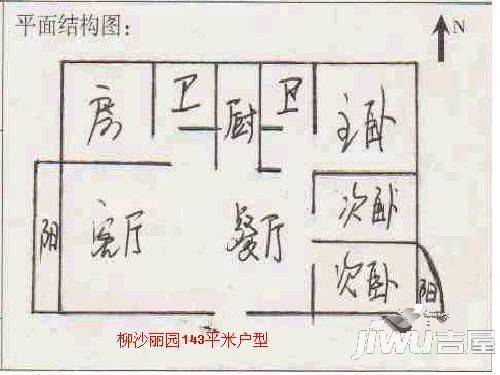 平面结构图：
N
房 卫 厨 卫 主卧
阳 客厅 餐厅 次卧
次卧 阳
柳沙丽园143平米户型
JIWU吉屋